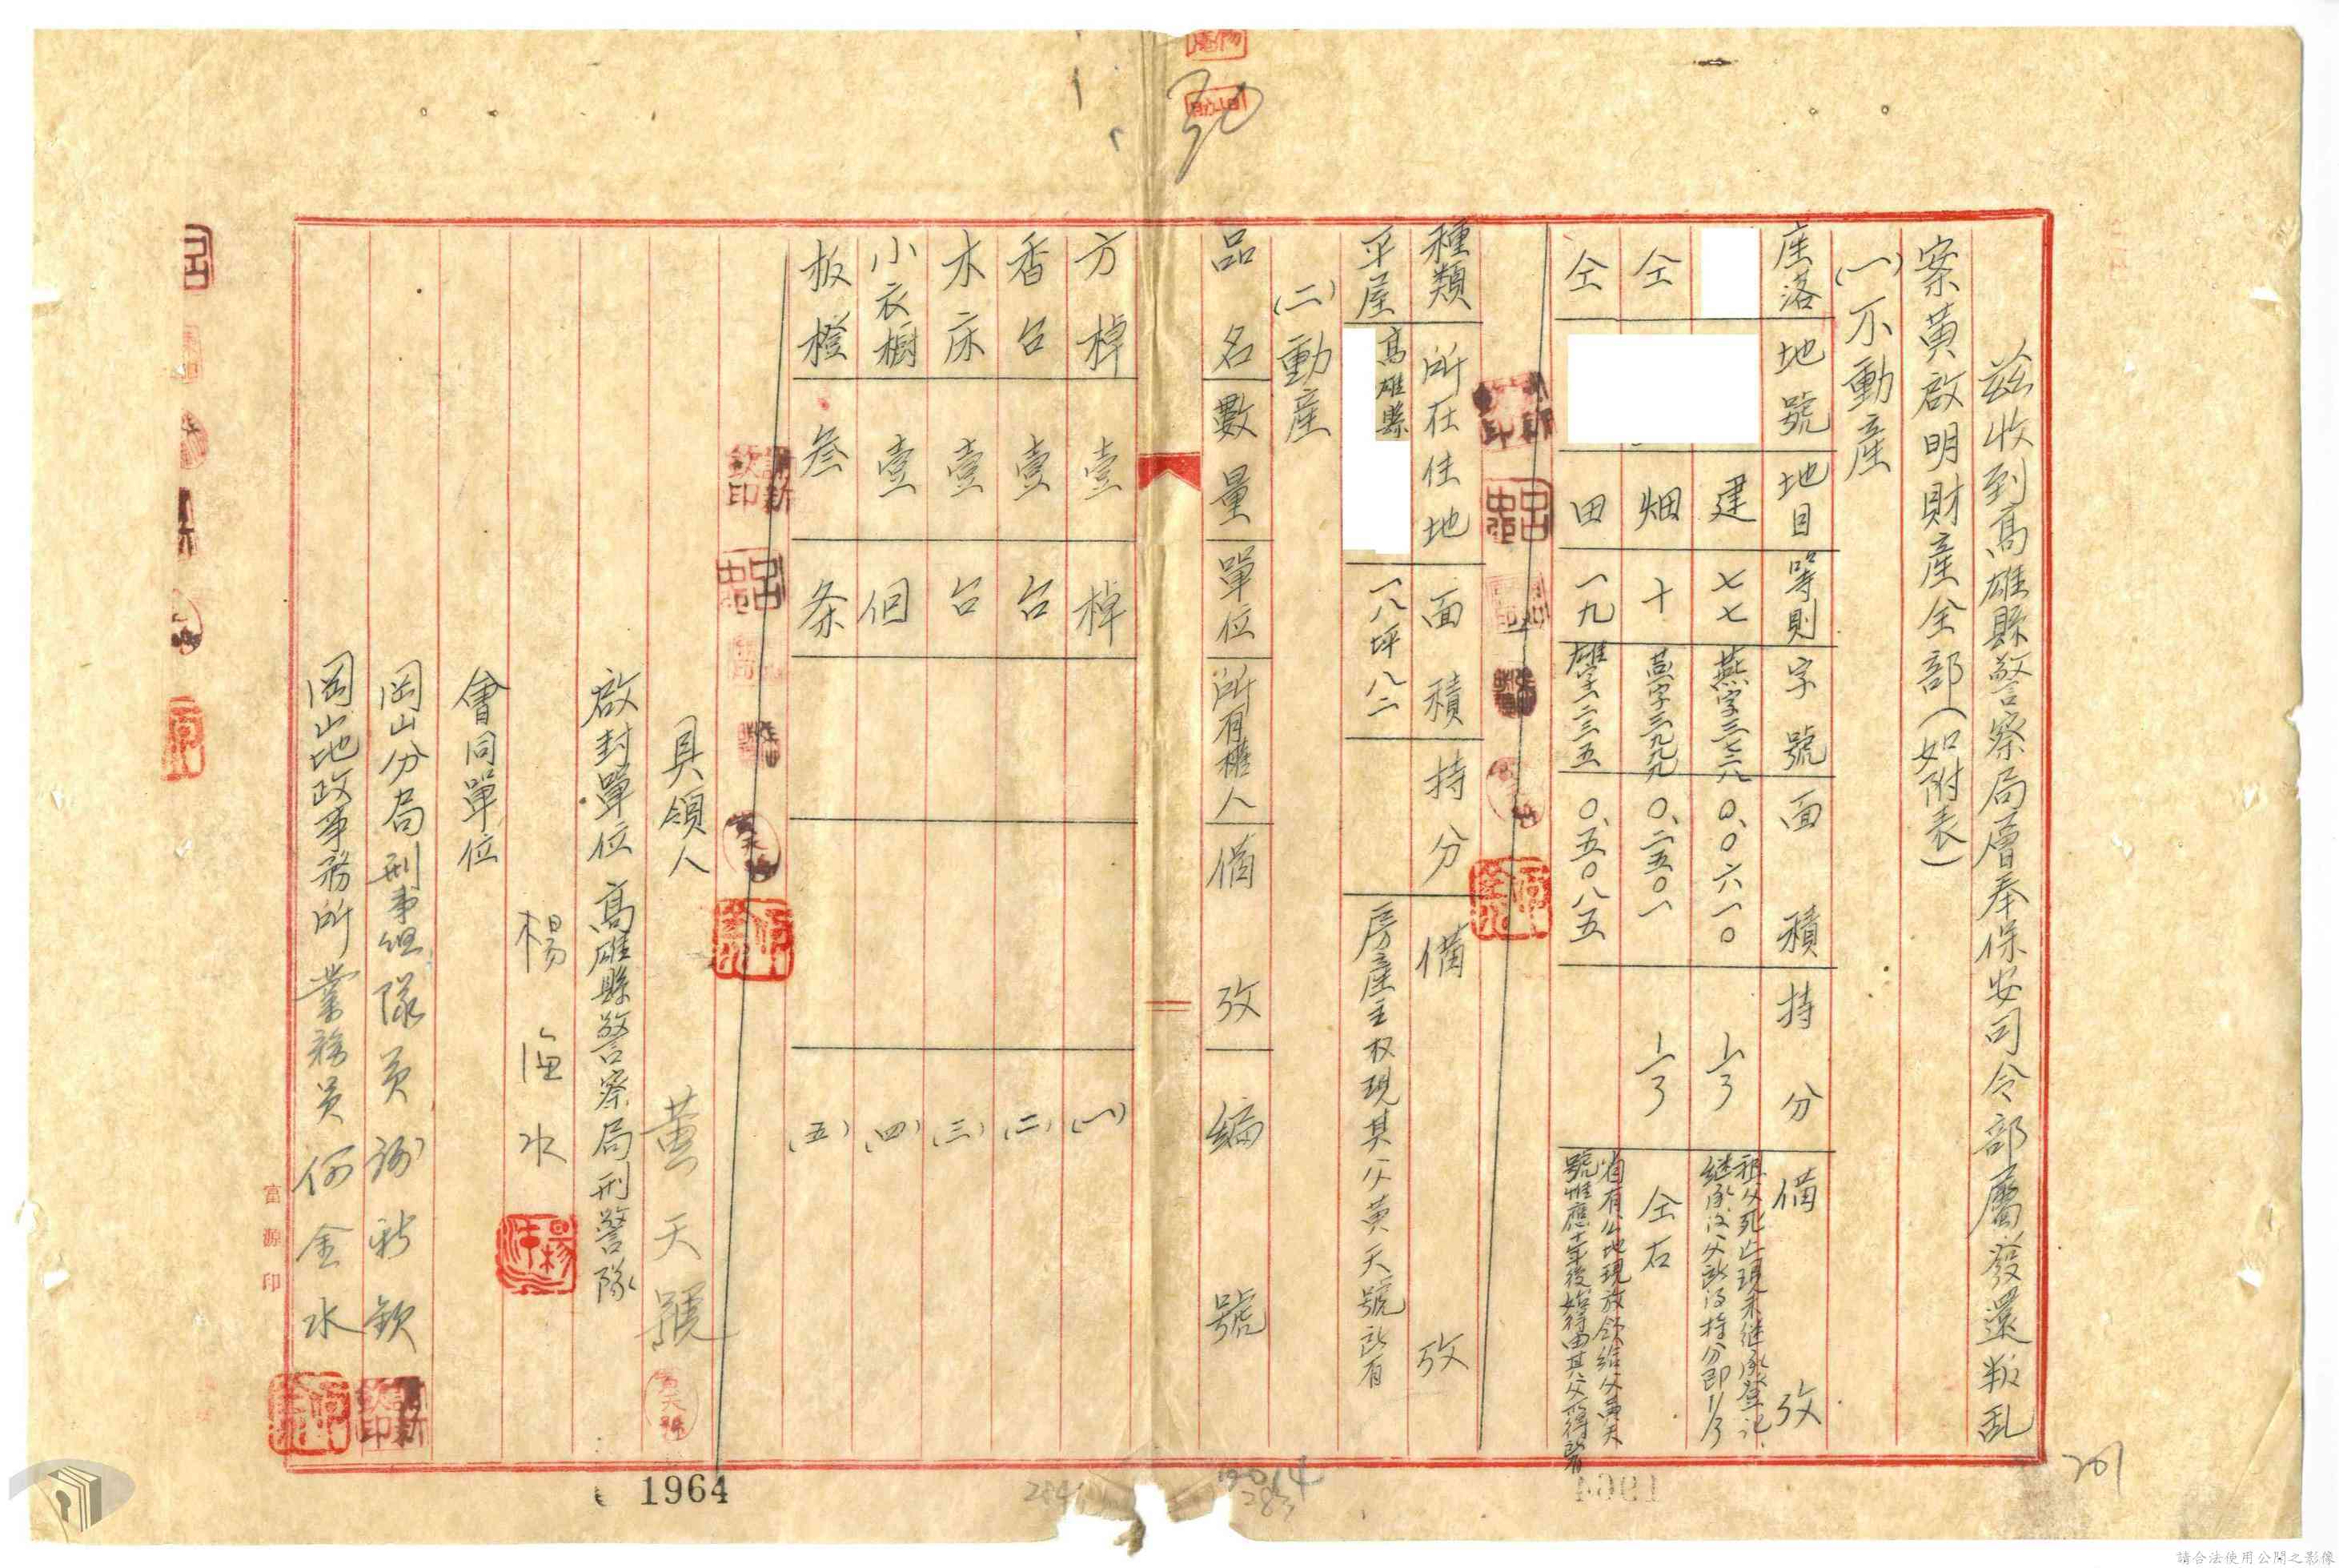 茲收到高雄縣警察局層奉保安司令部屬發還叛乱
案黃啟明財產全部(如附表)
(一)不動產
座落 地號 地目 等則 字號 面積 持分 備攷
建 七七 燕字三七三八 0.0六一0 1/3 祖父死亡現未继承登記.继承后父所得持分即1/3
仝 畑 十 燕字三九九九 0.二五0一 1/3 仝右
仝 田 一九 雄字二三五 0.五0八五 省有公地現放領給父黃天號惟應十年後始得由其父所得所有
種類 所在住地 面積 持分 備攷
平屋 高雄縣 一八坪八二 房產主权現其父黃天號所有
(二)動產
品名 數量 單位 所有權人 備攷 編號
方棹 壹 棹 (一)
香台 壹 台 (二)
木床 壹 台 (三)
小衣櫥 壹 個 (四)
板櫈 叁 条 (五)
具領人 黃天號
啟封單位 高雄縣警察局刑警隊
楊 水
會同單位
岡山分局刑事組隊員 謝新欽
岡山地政事務所業務員 何金水
富源印
1964
201
284
283
請合法使用公開之影像